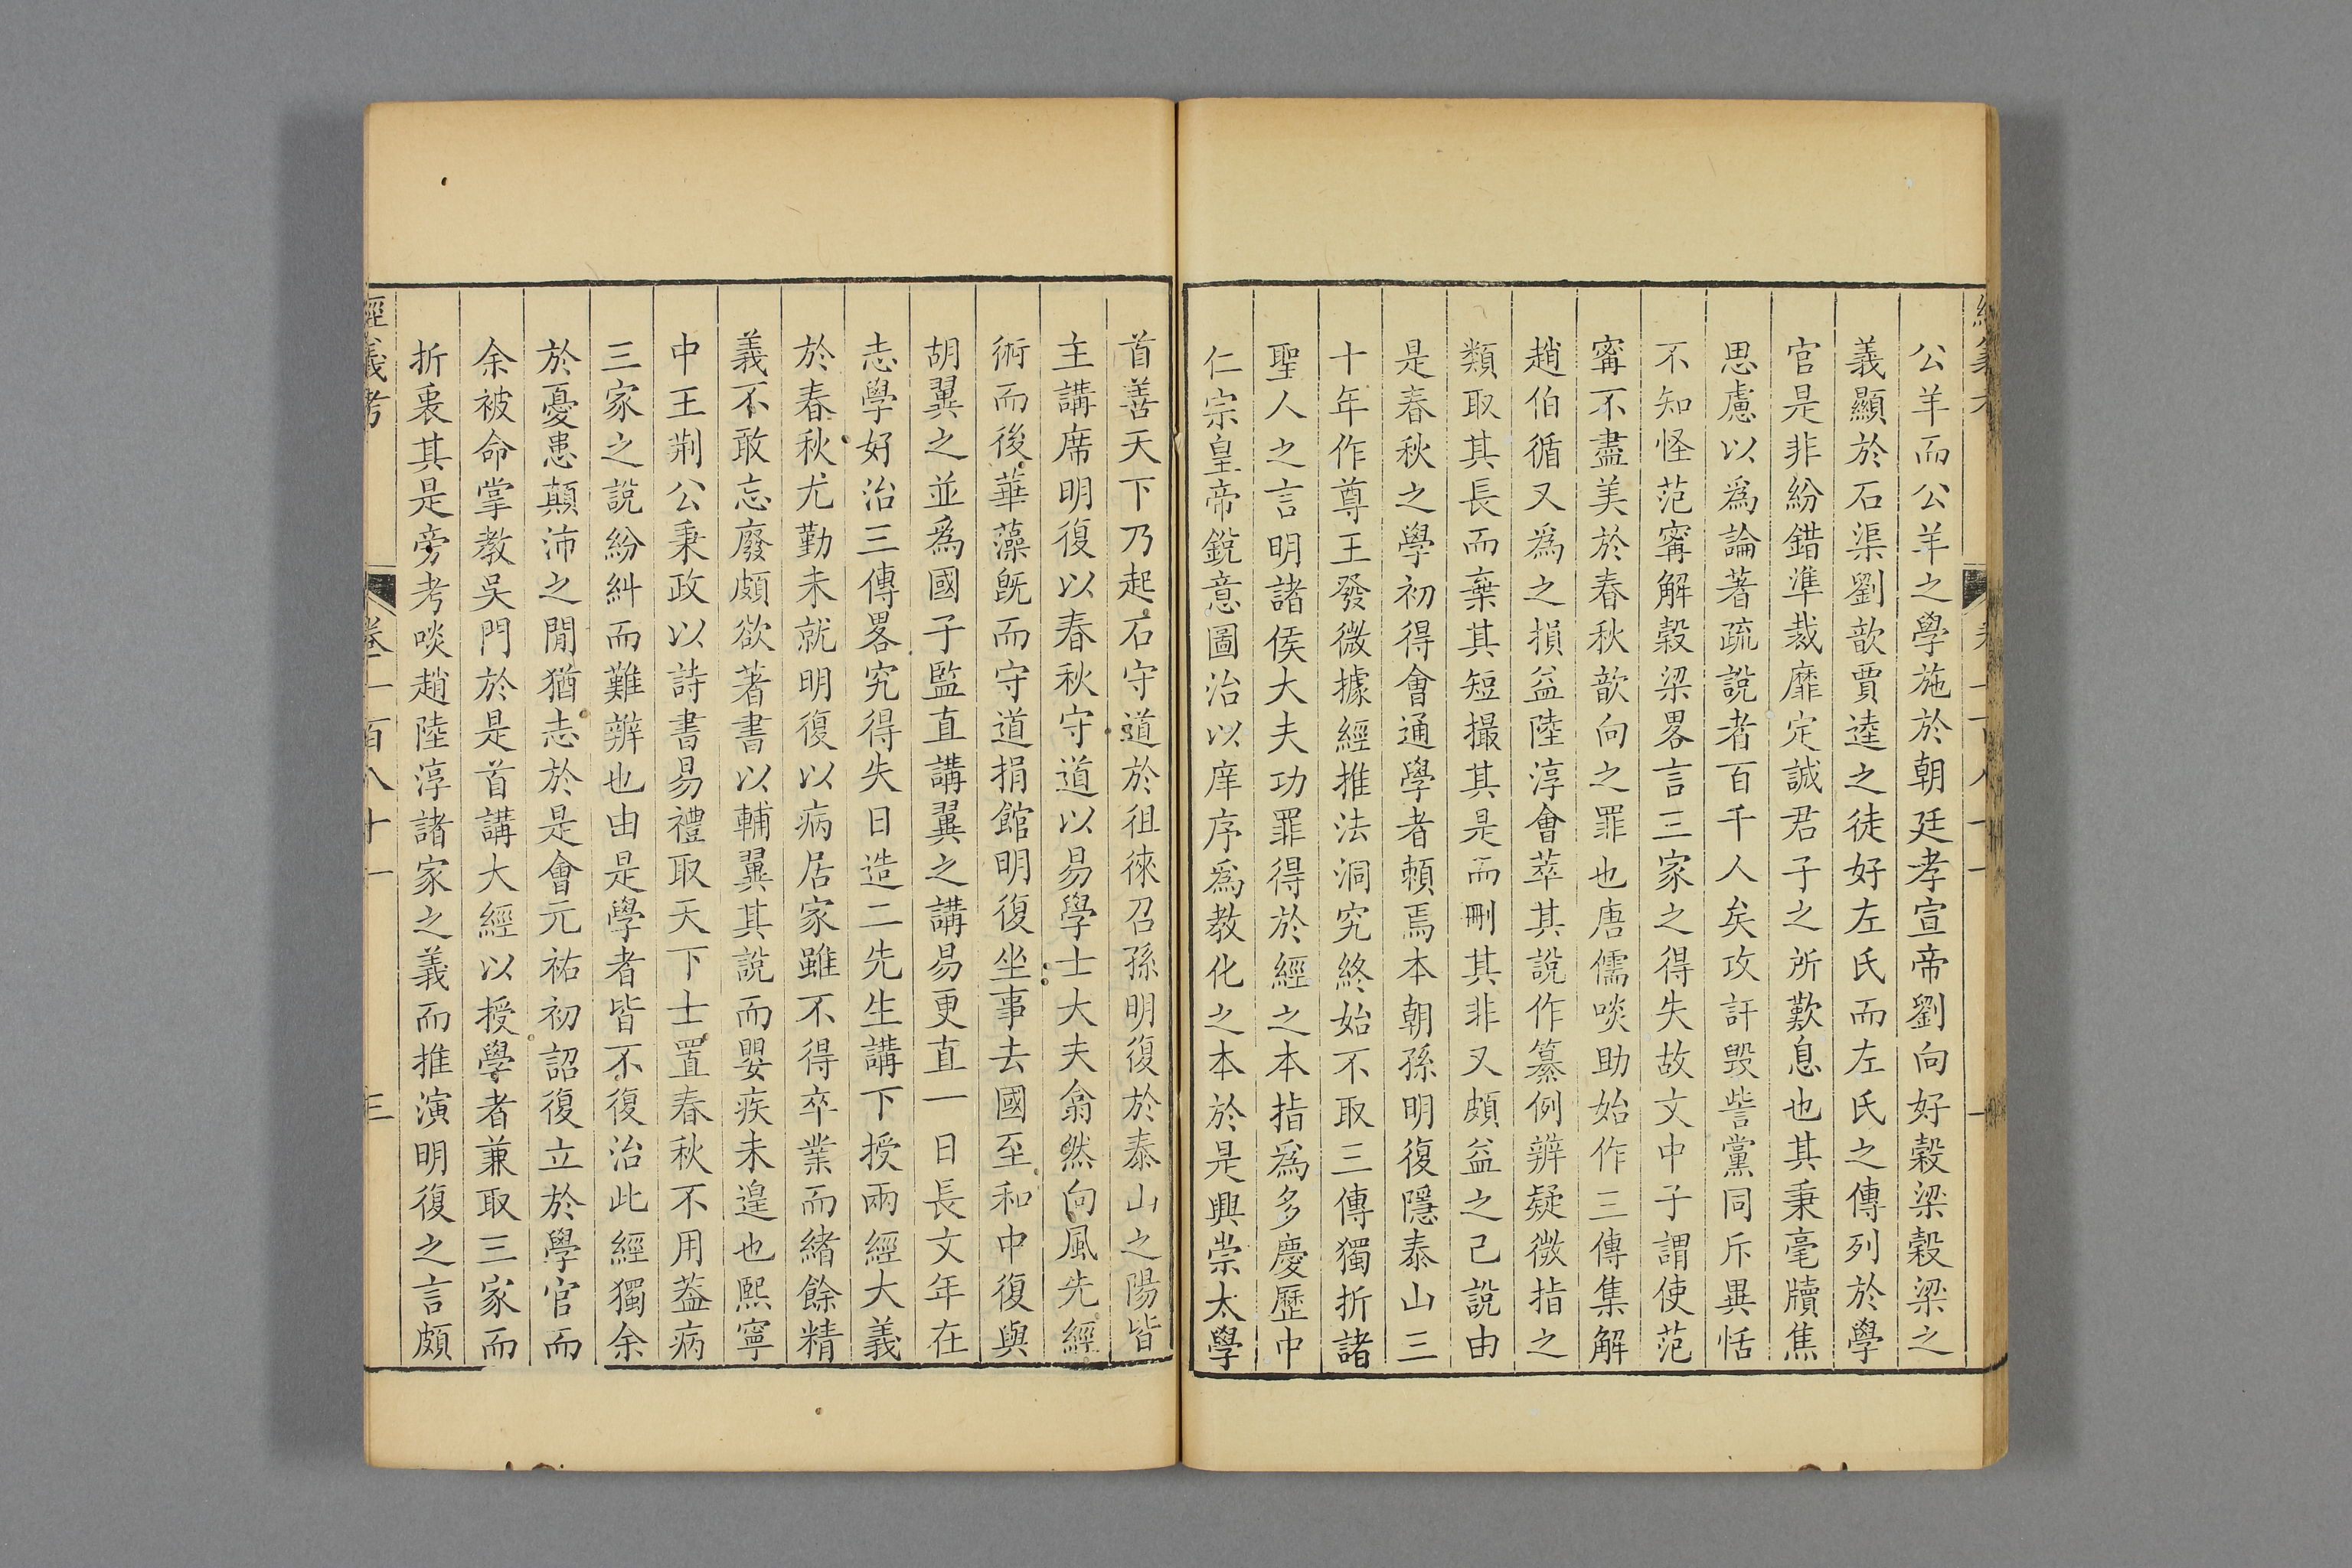 公羊而公羊之學施於朝廷孝宣帝劉向好穀梁穀梁之
義顯於石渠劉歆賈逵之徒好左氏而左氏之傳列於學
官是非紛錯準裁靡定誠君子之所歎息也其秉毫牘焦
思慮以爲論著疏說者百千人矣攻訐毀訾黨同斥異恬
不知怪范甯解穀梁畧言三家之得失故文中子謂使范
甯不盡美於春秋歆向之罪也唐儒啖助始作三傳集解
趙伯循又爲之損益陸淳會萃其說作纂例辨疑微指之
類取其長而棄其短撮其是而刪其非又頗益之己說由
是春秋之學初得會通學者頼焉本朝孫明復隱泰山三
十年作尊王發微據經推法洞究終始不取三傳獨折諸
聖人之言明諸侯大夫功罪得於經之本指爲多慶歷中
仁宗皇帝銳意圖治以庠序爲教化之本於是興崇太學
首善天下乃起石守道於徂徠召孫明復於泰山之陽皆
主講席明復以春秋守道以易學士大夫翕然向風先經
術而後華藻旣而守道捐館明復坐事去國至和中復與
胡翼之並爲國子監直講翼之講易更直一日長文年在
志學好治三傳畧究得失日造二先生講下授兩經大義
於春秋尤勤未就明復以病居家雖不得卒業而緒餘精
義不敢忘廢頗欲著書以輔翼其說而嬰疾未遑也熙寧
中王荆公秉政以詩書易禮取天下士置春秋不用葢病
三家之說紛糾而難辨也由是學者皆不復治此經獨余
於憂患顛沛之閒猶志於是會元祐初詔復立於學官而
余被命掌教吳門於是首講大經以授學者兼取三家而
折衷其是旁考啖趙陸淳諸家之義而推演明復之言頗
經義考 卷一百八十一 三